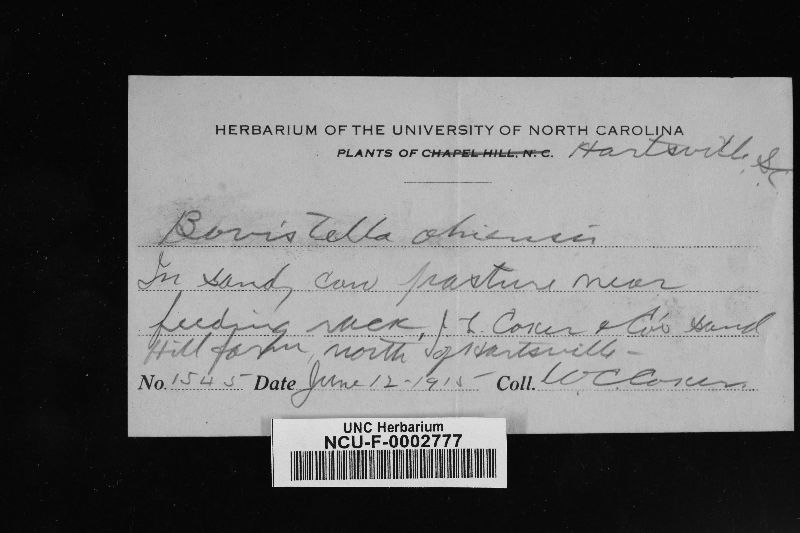 HERBARIUM OF THE UNIVERSITY OF NORTH CAROLINA
PLANTS OF CHAPEL HILL, N. C. Hartsville, S.C.
Bovistella ohiensis
In sandy cow pasture near
feeding rack, J. L. Coker & Co's sand
Hill farm, north of Hartsville -
No. 1545 Date June 12-1915 Coll. W.C. Coker.
UNC Herbarium
NCU-F-0002777